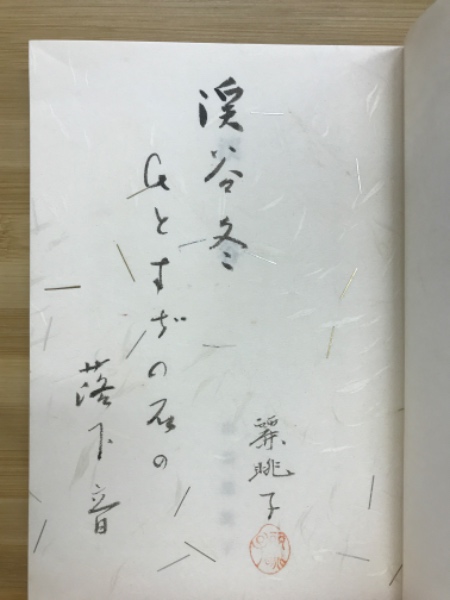 渓谷冬
ひとすぢの石の
落下音
麗眺子